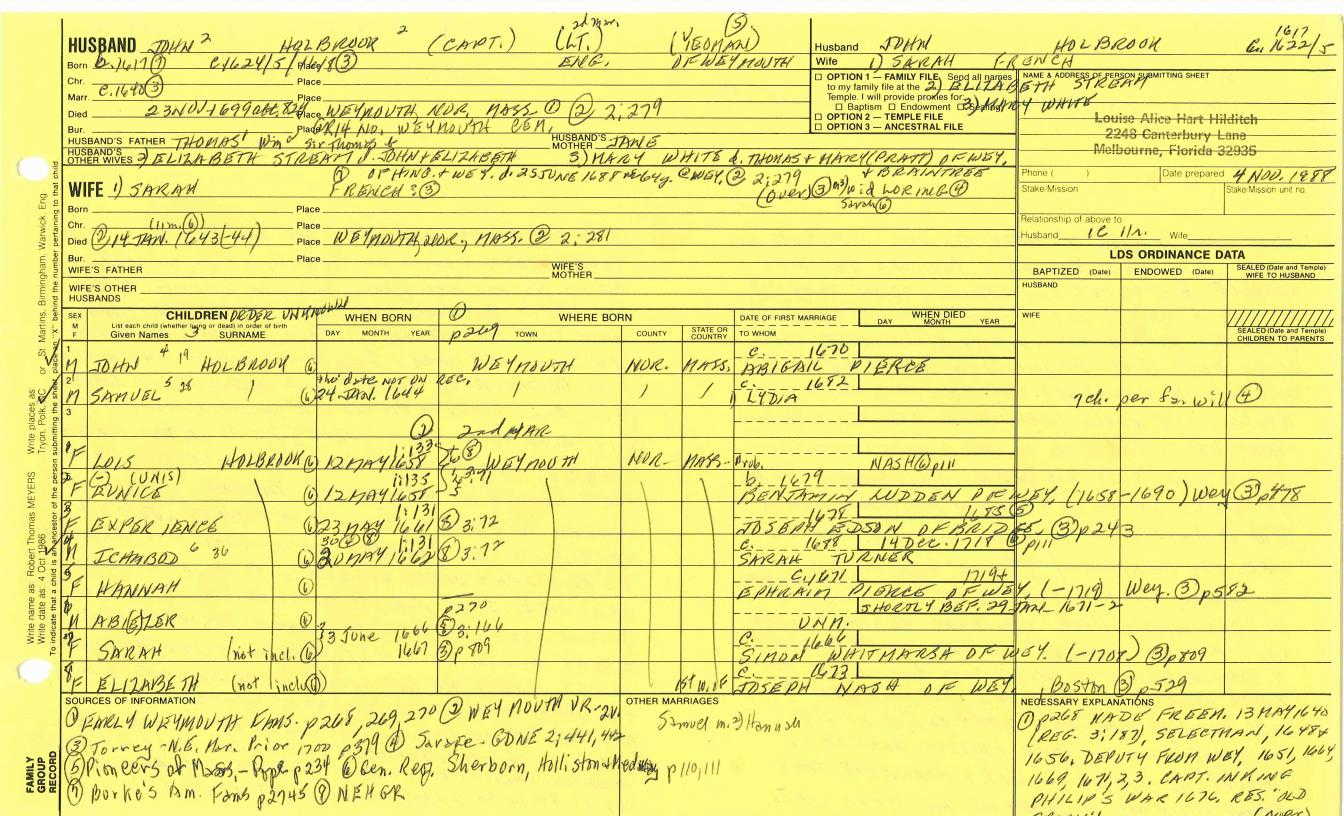 HUSBAND JOHN 2 HOLBROOK 2 (CAPT.) (LT.) 2d mar. (YEOMAN) (5)
Born c. 1617 (7) c 1624/5 / (3) Place ENG. OF WEYMOUTH
Chr. Place
Marr. c. 1640 (3) Place
Died 23 NOV. 1699 Place WEYMOUTH, NOR, MASS. (1) (2) 2:279
Bur. Place NO. WEYMOUTH CEM.
HUSBAND'S FATHER THOMAS 1 HUSBAND'S MOTHER JANE
HUSBAND'S OTHER WIVES 2) ELIZABETH STREAM d. JOHN + ELIZABETH 3) MARY WHITE d. THOMAS + MARY (PRATT) OF WEY.
(1) OF HING. + WEY. d. 25 JUNE 1688 64y. @ WEY. (2) 2:279 + BRAINTREE
WIFE 1) SARAH FRENCH ? (3) (over) (3) LORING (4)
Sarah (6)
Born Place
Chr. (11m. (6)) Place
Died (2) 14 JAN. 1643 (-44) Place WEYMOUTH, NOR., MASS. (2) 2:281
Bur. Place
WIFE'S FATHER WIFE'S MOTHER
WIFE'S OTHER HUSBANDS
Husband JOHN HOLBROOK 1617 c. 1622/5
Wife 1) SARAH FRENCH
2) ELIZABETH STREAM
3) MARY WHITE
OPTION 1 — FAMILY FILE Send all names
to my family file at the
Temple. I will provide proxies for
Baptism Endowment Sealing
OPTION 2 — TEMPLE FILE
OPTION 3 — ANCESTRAL FILE
NAME & ADDRESS OF PERSON SUBMITTING SHEET
Louise Alice Hart Hilditch
2248 Canterbury Lane
Melbourne, Florida 32935
Phone ( ) Date prepared 4 NOV. 1988
Stake/Mission Stake/Mission unit no.
Relationship of above to
Husband Wife
LDS ORDINANCE DATA
BAPTIZED (Date) ENDOWED (Date) SEALED (Date and Temple) WIFE TO HUSBAND
HUSBAND
WIFE
SEALED (Date and Temple) CHILDREN TO PARENTS
SEX M F CHILDREN ORDER UNKNOWN WHEN BORN (1) WHERE BORN DATE OF FIRST MARRIAGE WHEN DIED
List each child (whether living or dead) in order of birth
Given Names 3 SURNAME DAY MONTH YEAR p269 TOWN COUNTY STATE OR COUNTRY TO WHOM DAY MONTH YEAR
1 M JOHN 4 19 HOLBROOK (6) WEYMOUTH NOR. MASS. c. 1670
ABIGAIL PIERCE
2 M SAMUEL 5 28 (6) tho' date NOT ON REC. 24 JAN. 1644 c. 1682
LYDIA
7 ch. per fa. will (4)
3
(2) 2nd MAR
1 F LOIS HOLBROOK (6) 12 MAY 1658 1:133 (8) WEYMOUTH NOR- MASS- Prob. NASH (6) p111
2 F (-) (UNIS) EUNICE (6) 12 MAY 1658 1:135 b. 1679
BENJAMIN LUDDEN OF WEY. (1658-1690) Wey (3) p478
3 F EXPERIENCE (6) 23 MAY 1661 1:131 (8) 3:72 1678 1685 (5)
JOSEPH EDSON OF BRIDG. (3) p243
4 M ICHABOD 6 36 (6) 20 MAY 1662 30 (4) (8) 1:131 (8) 3:72 c. 1688 14 DEC. 1718 (6) p111
SARAH TURNER
5 F HANNAH (6) c. 1671 1719+
EPHRAIM PIERCE OF WEY. (-1719) Wey. (3) p582
6 M ABIEZER (6) p270 SHORTLY BEF. 29 JAN- 1671-2
UNM.
7 F SARAH (not incl. (6)) 3 June 1666 1667 (8) 3:166 (3) p809 c. 1666
SIMON WHITMARSH OF WEY. (-1708) (3) p809
8 F ELIZABETH (not incl (6)) c. 1673
JOSEPH NASH OF WEY., Boston (3) p529
SOURCES OF INFORMATION
(1) EARLY WEYMOUTH FAMS. p268, 269, 270 (2) WEYMOUTH VR-2V.
(3) Torrey - N.E. Mar. Prior 1700 p379 (4) Savage - GDNE 2:441, 442
(5) Pioneers of Mass. - Pope p234 (6) Gen. Reg. Sherborn, Holliston + Medway p110, 111
(7) Burke's Am. Fams p2745 (8) NEHGR
OTHER MARRIAGES
Samuel m. 2) Hannah
NECESSARY EXPLANATIONS
(1) p268 MADE FREEM. 13 MAY 1640
(REG. 3:187), SELECTMAN, 1648 +
1656. DEPUTY FROM WEY, 1651, 1664,
1669, 1671, 2, 3. CAPT. IN KING
PHILIP'S WAR 1676. RES. 'OLD
(OVER)
FAMILY GROUP RECORD
Write name as Robert Thomas MEYERS Write places as Tryon, Polk, NC or St. Martins, Birmingham, Warwick, Eng
Write date as: 4 Oct 1986